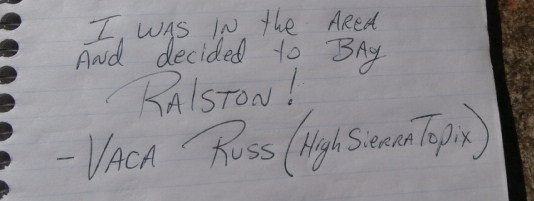 I WAS IN the AREA
AND decided to BAg
RALSTON!
- VACA RUSS (High SIERRA TOPIX)